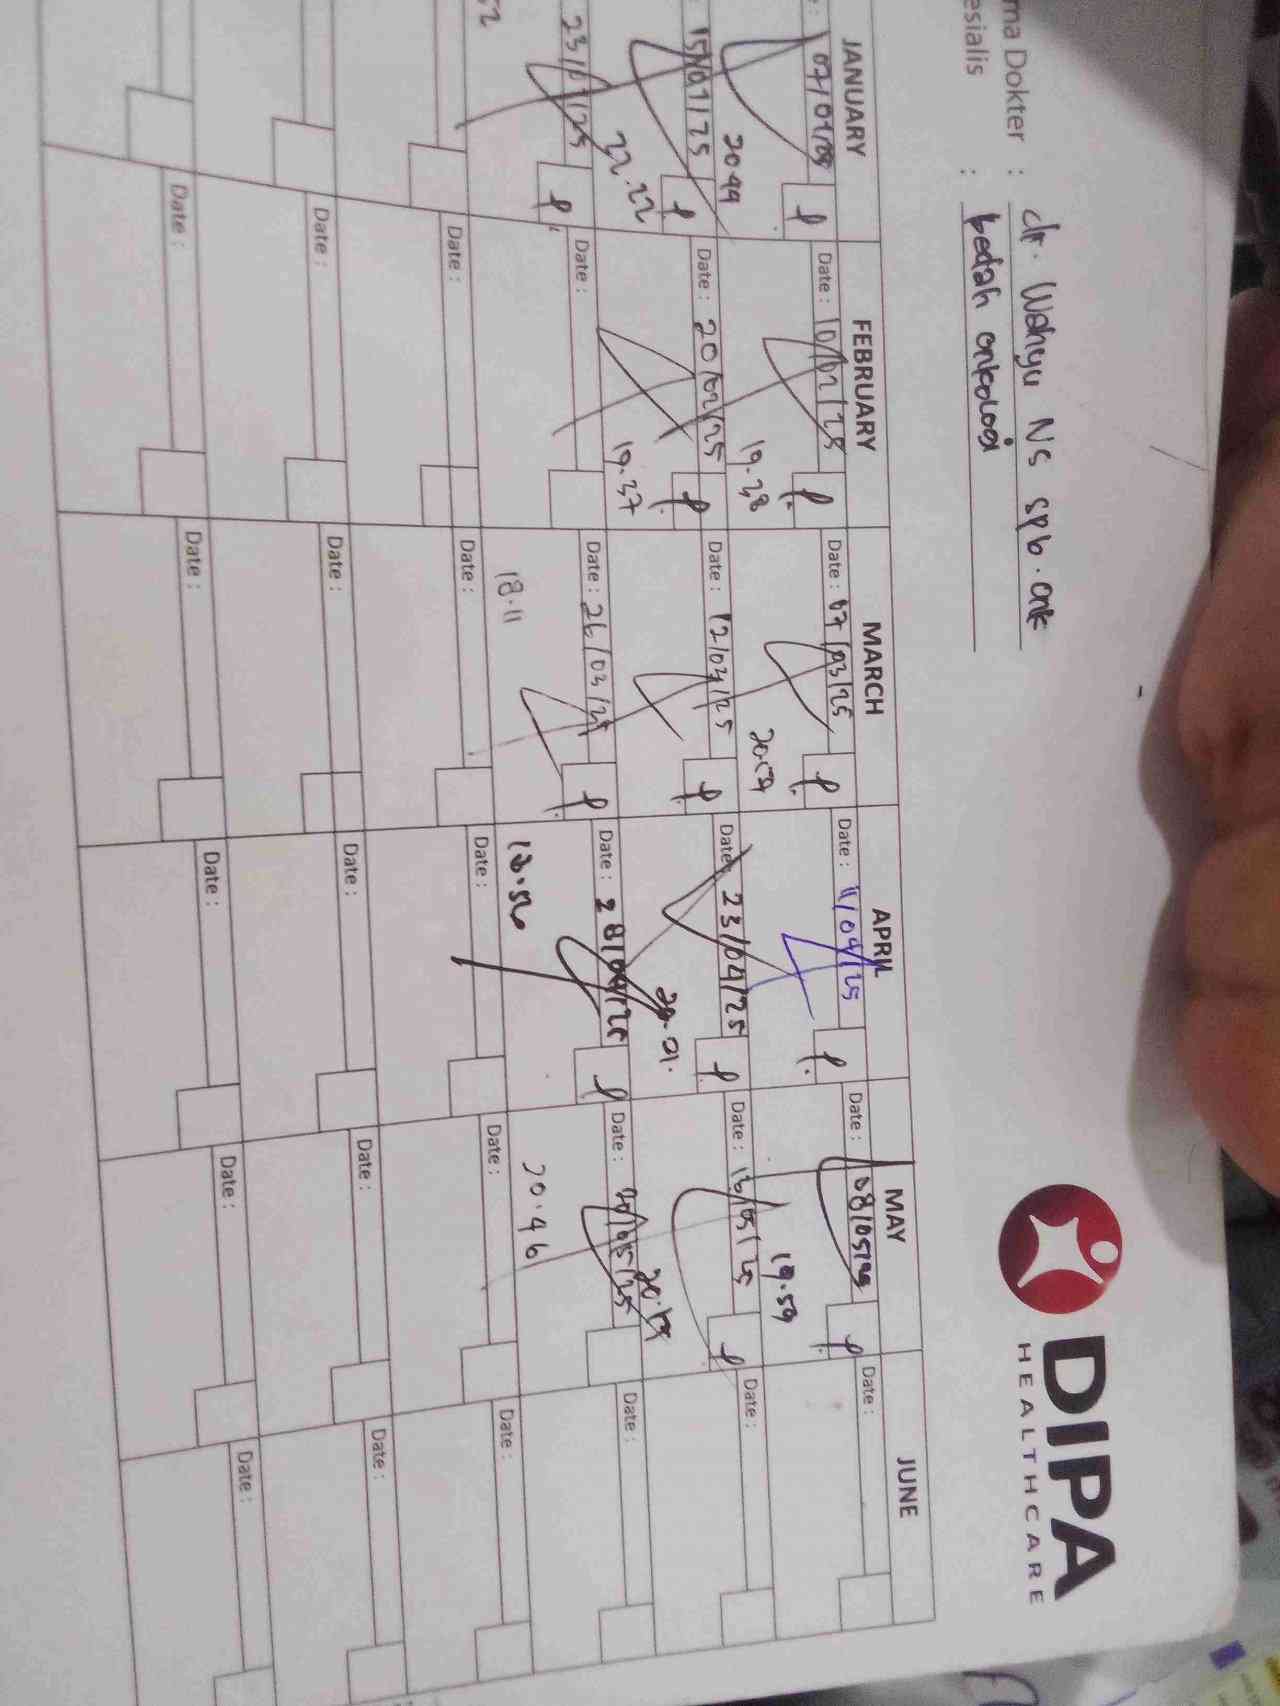 DIPA
HEALTHCARE
ma Dokter : dr. Wahyu NS spb.onk
esialis : bedah onkologi
JANUARY FEBRUARY MARCH APRIL MAY JUNE
07/01/25 Date : 10/02/25 Date : 07/03/25 Date : 11/04/25 Date : 08/05/25 Date :
20.44 19.38 19.59
15/01/25 Date : 20/02/25 Date : 12/03/25 Date : 23/04/25 Date : 13/05/25 Date :
22.22 19.37 20.01.
23/01/25 Date : Date : 26/03/25 Date : 28/04/25 Date : 20/05/25 Date :
18.11 18.56 20.46
Date : Date : Date : Date : Date :
Date : Date : Date : Date : Date :
Date : Date : Date : Date : Date :